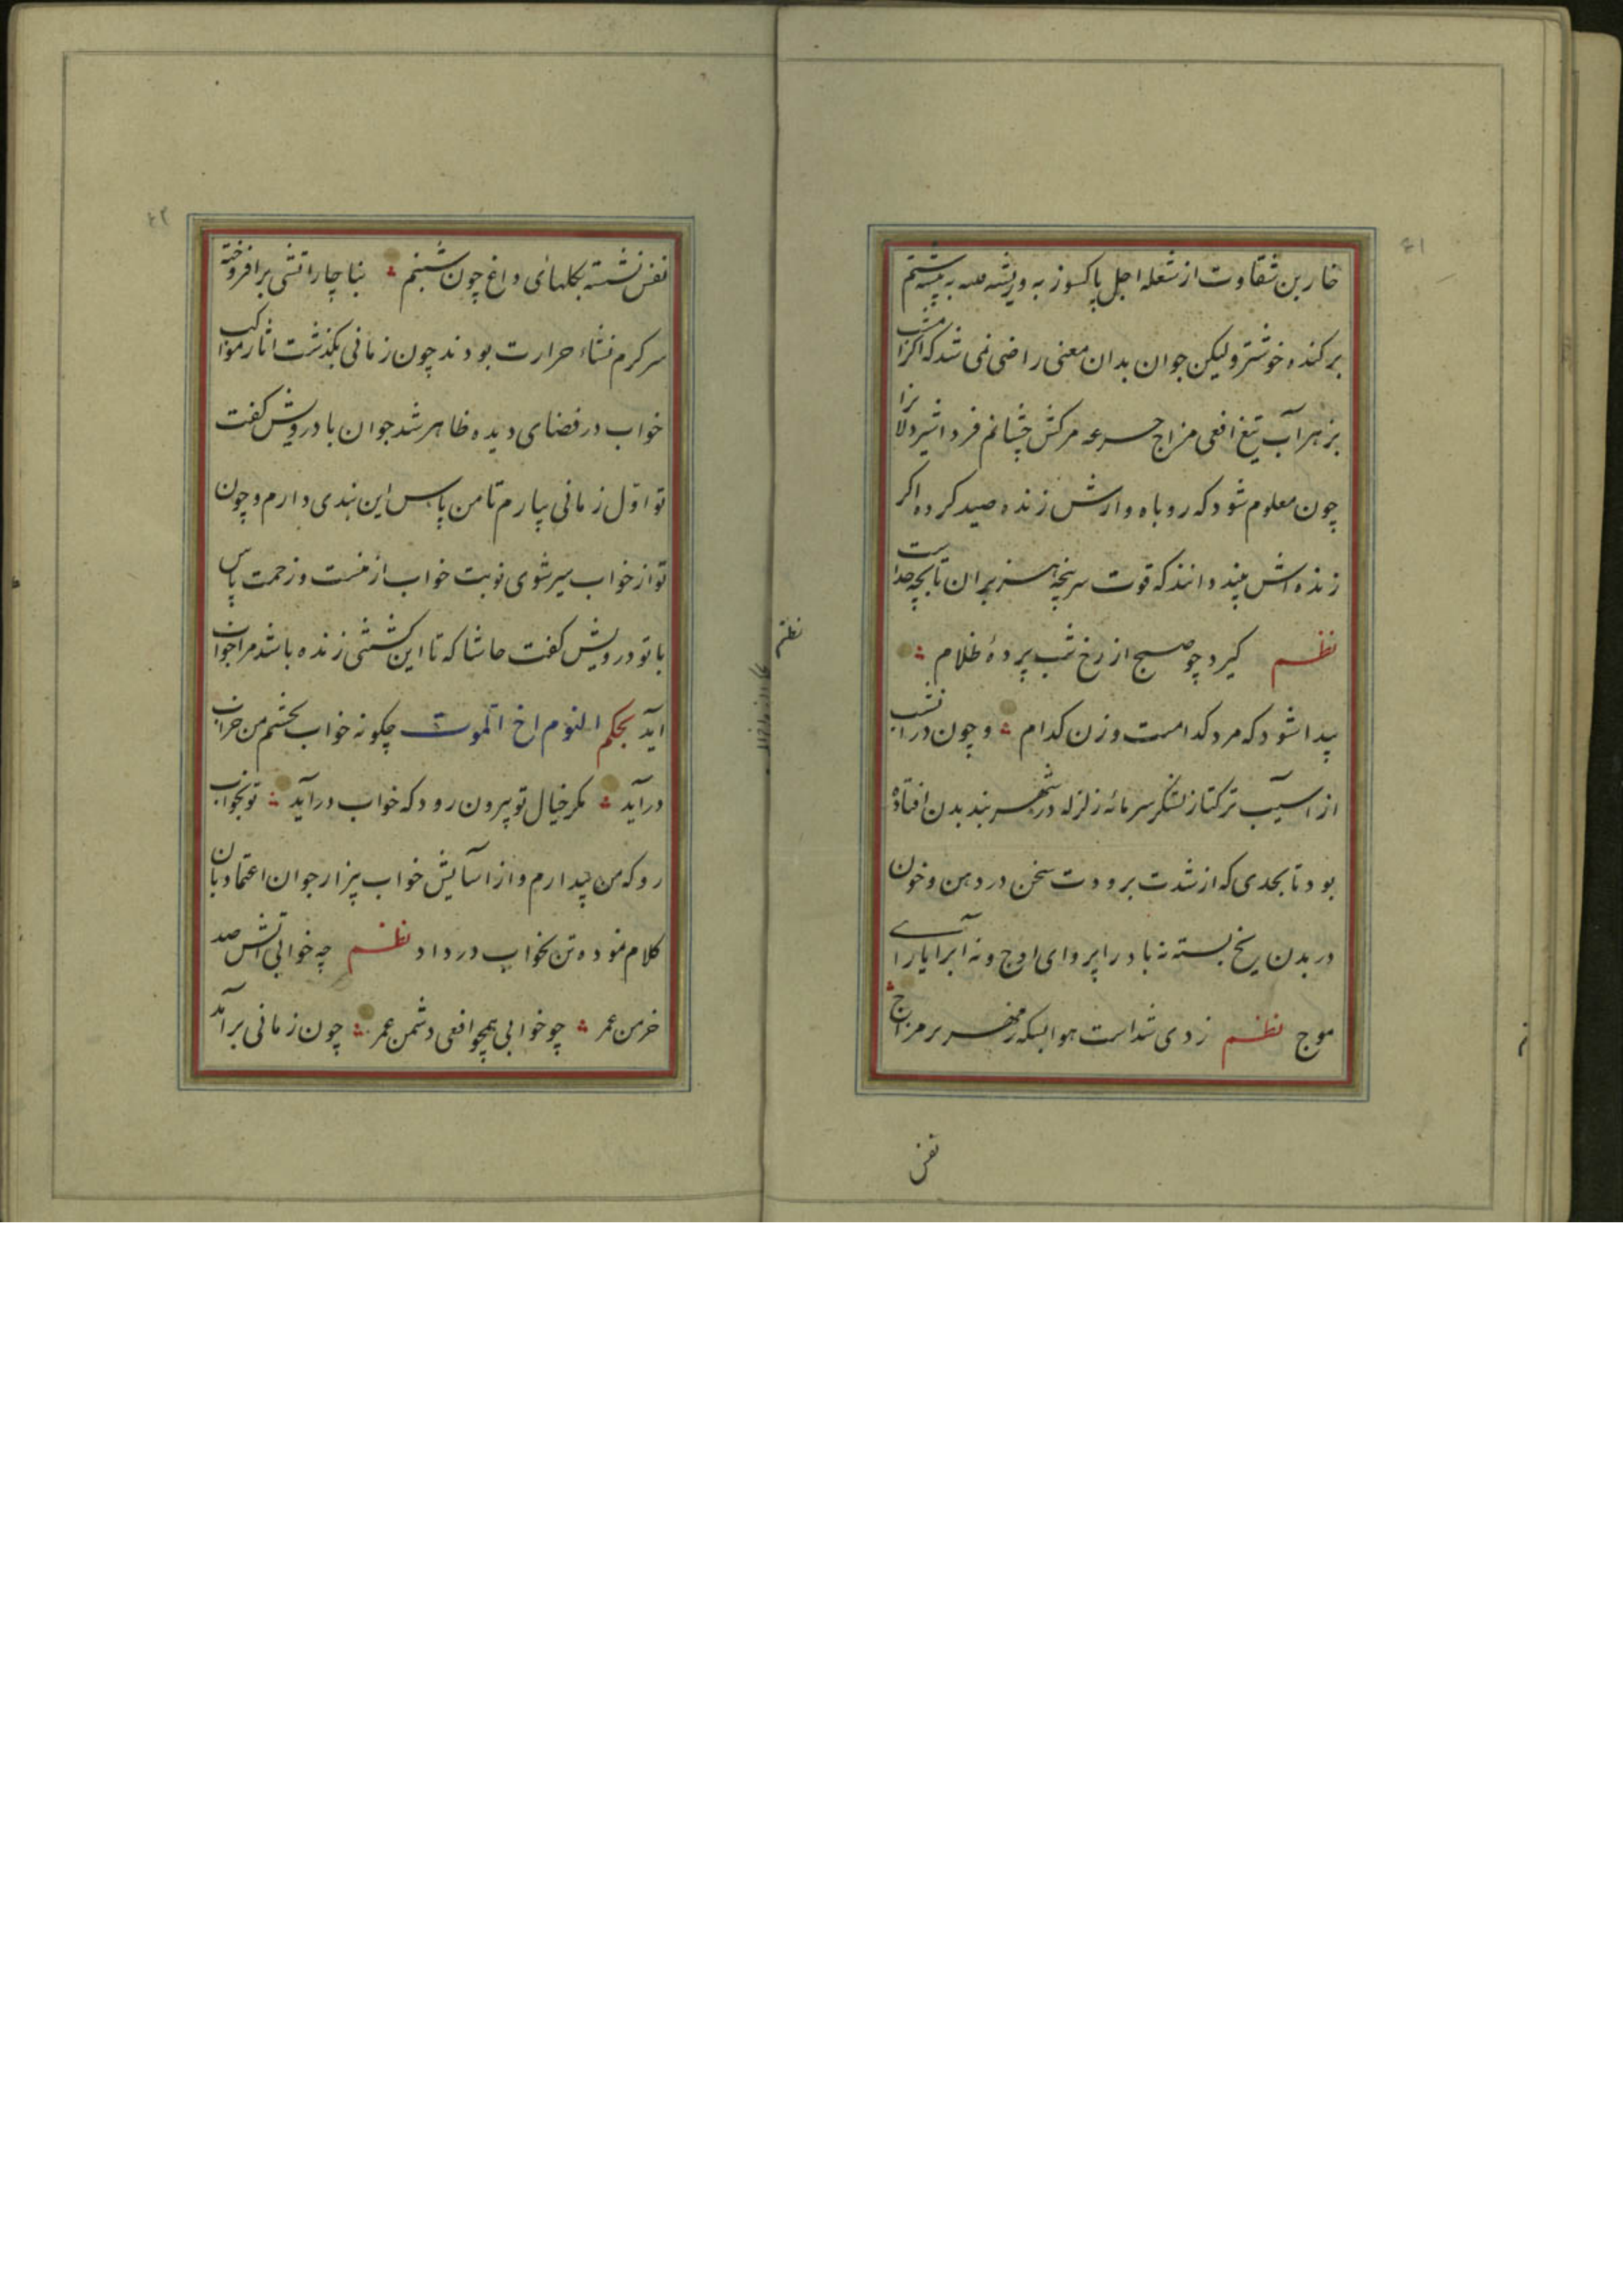 ۶۱
خار بن شقاوت از شعله اجل پاکسوز به و ریشه به تیشه ستم
برکنده خوشتر ولیکن جوان بدان معنی راضی نمی شد که اکر امشب
بزهرآب تیغ افعی مزاج جرعه مرکش چشانم فردا شیردلانرا
چون معلوم شود که روباه وارش زنده صید کرده اکر
زنده اش بینند دانند که قوت سرپنجه هزبران تا بچه حد است
نظم کیرد چو صبح از رخ شب پردهٔ ظلام
پیدا شود که مرد کدامست و زن کدام و چون در آنشب
از آسیب ترکتاز لشکر سرما زلزله در شهربند بدن افتاده
بود تا بحدی که از شدت برودت سخن در دهن و خون
در بدن یخ بسته نه باد را پروای اوج و نه آب را یارای
موج نظم ز دی شداست هوا بسکه زمهریر مزاج
نفس
نظم
۶۲
نفس نشسته بکلهای داغ چون شبنم بناچار اتشی برافروخته
سرکرم نشاء حرارت بودند چون زمانی بکذشت اثار مواکب
خواب در فضای دیده ظاهر شد جوان با درویش کفت
تو اول زمانی بیارم تا من پاس این بندی دارم و چون
تو از خواب سیر شوی نوبت خواب از منست و زحمت پاس
با تو درویش کفت حاشا که تا این کشتنی زنده باشد مرا خواب
اید بحکم النوم اخ الموت چکونه خواب بچشم من خراب
درآید مکر خیال تو بیرون رود که خواب درآید تو بخواب
رو که من بیدارم و از آسایش خواب بیزار جوان اعتماد بان
کلام نموده تن بخواب در داد نظم چه خوابی آتش صد
خرمن عمر چو خوابی همچو افعی دشمن عمر چون زمانی برآمد